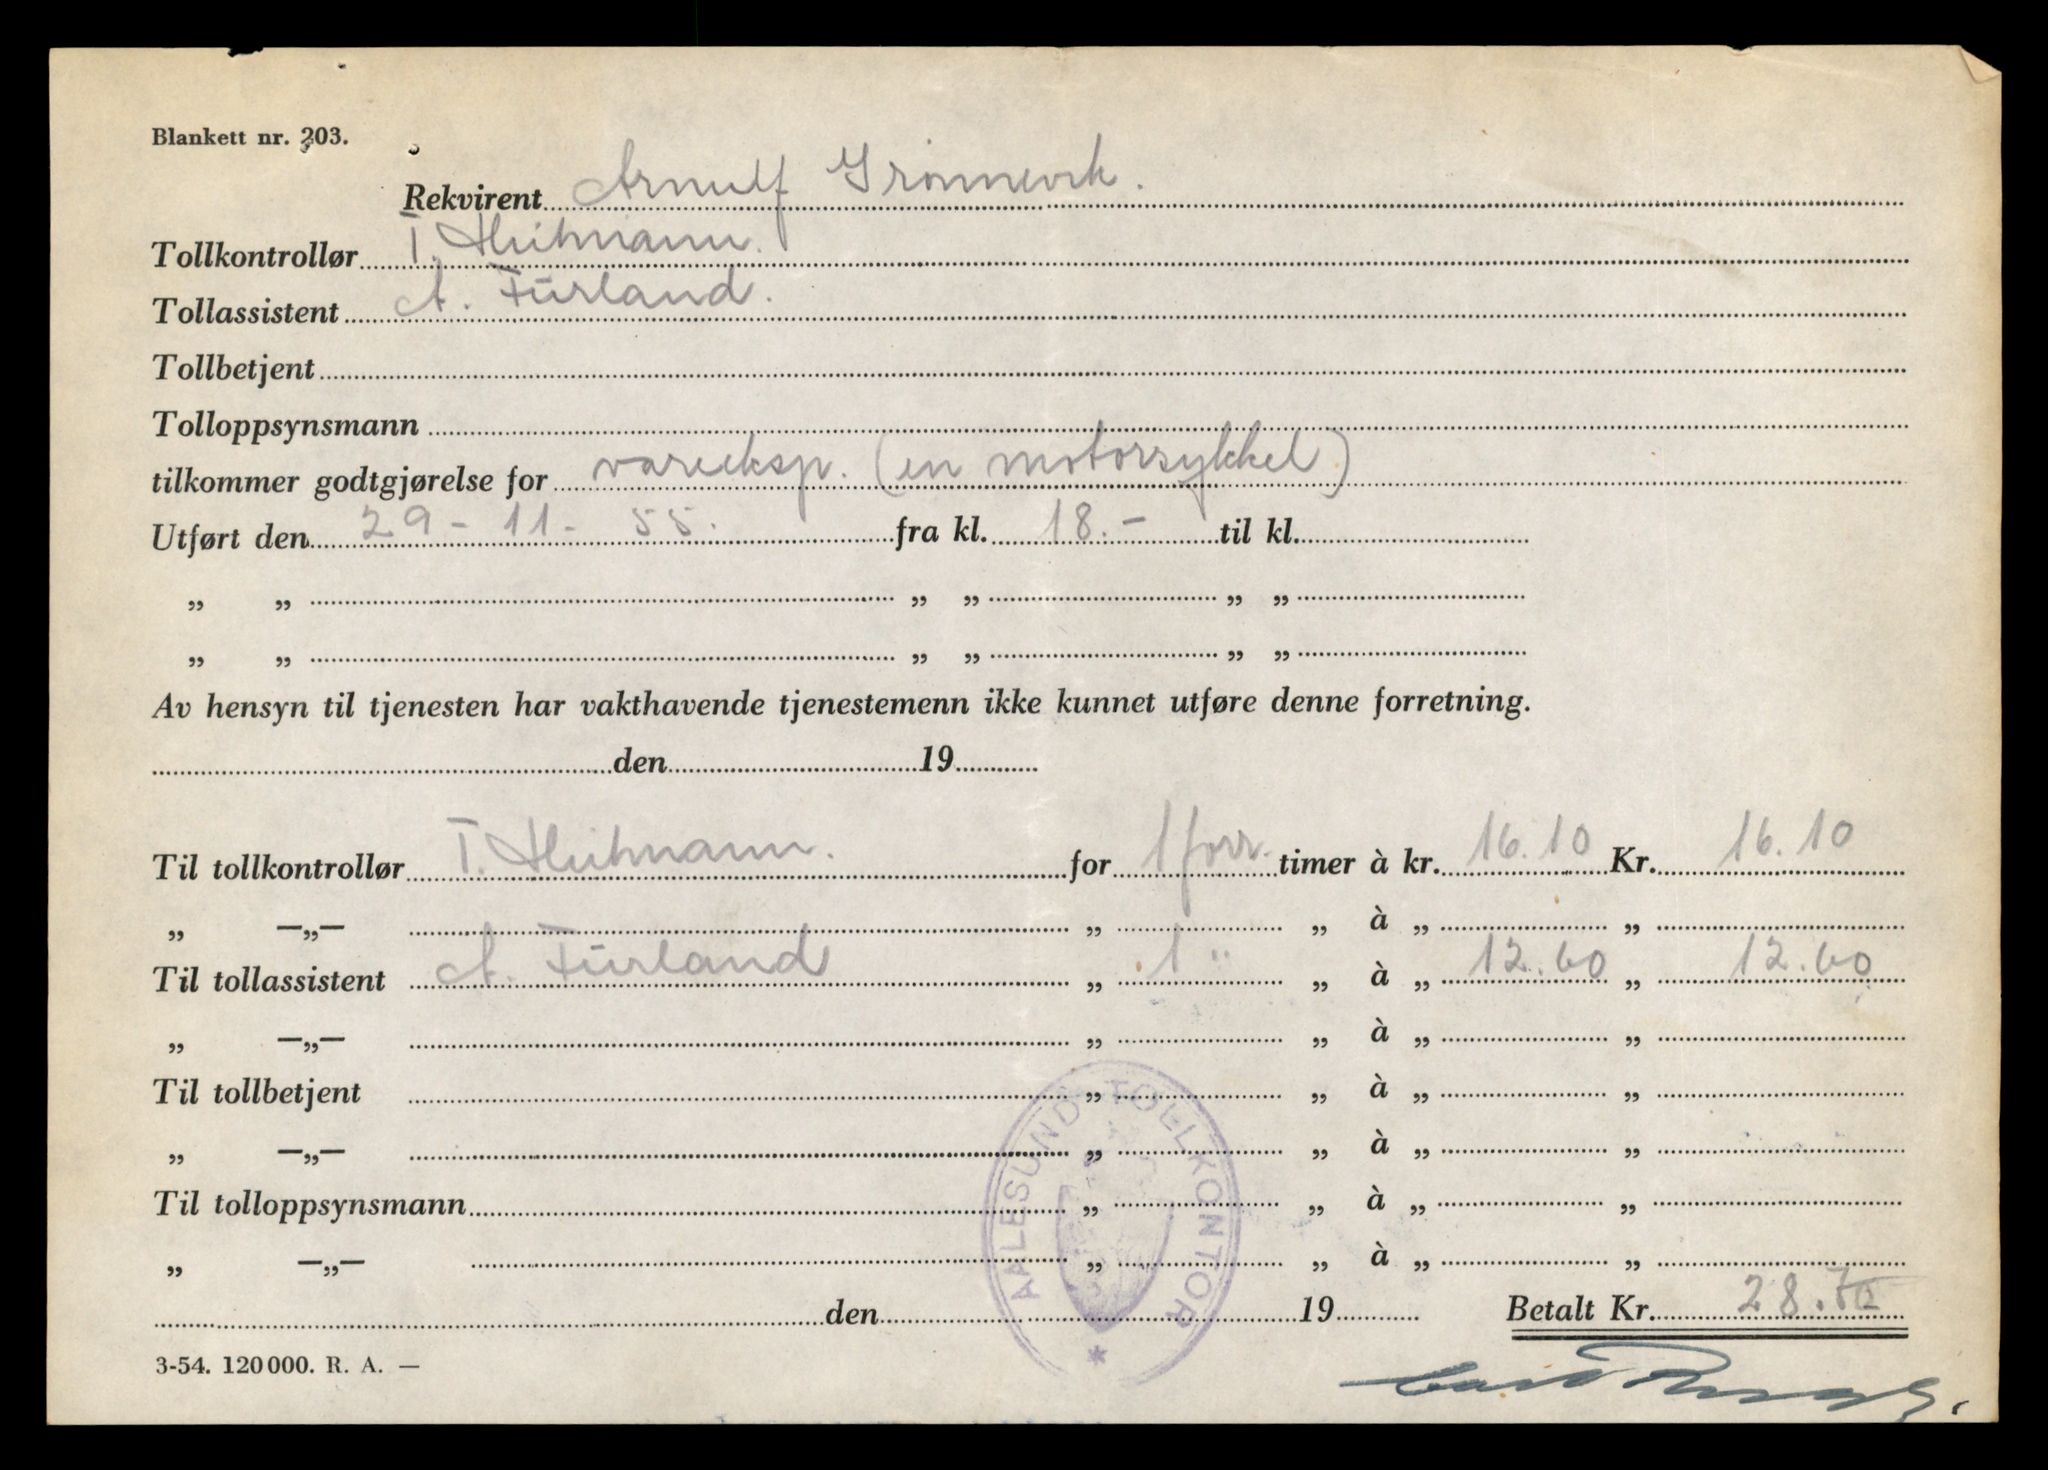 Blankett nr. 203.
Rekvirent Arnulf Grønnevik.
Tollkontrollør T. Heitmann.
Tollassistent A. Furland.
Tollbetjent
Tolloppsynsmann
tilkommer godtgjørelse for vareeksp. (en motorsykkel)
Utført den 29-11-55. fra kl. 18.- til kl.
„ „ „ „ „ „
„ „ „ „ „ „
Av hensyn til tjenesten har vakthavende tjenestemenn ikke kunnet utføre denne forretning.
den 19
Til tollkontrollør T. Heitmann. for 1 forr. timer à kr. 16.10 Kr. 16.10
„ —„— „ „ à „ „
Til tollassistent A. Furland „ 1 " „ à „ 12.60 „ 12.60
„ —„— „ „ à „ „
Til tollbetjent „ „ à „ „
„ —„— „ „ à „ „
Til tolloppsynsmann „ „ à „ „
„ —„— „ „ à „ „
den 19 Betalt Kr. 28.70
AALESUND TOLLKONTOR
3-54. 120 000. R. A. —